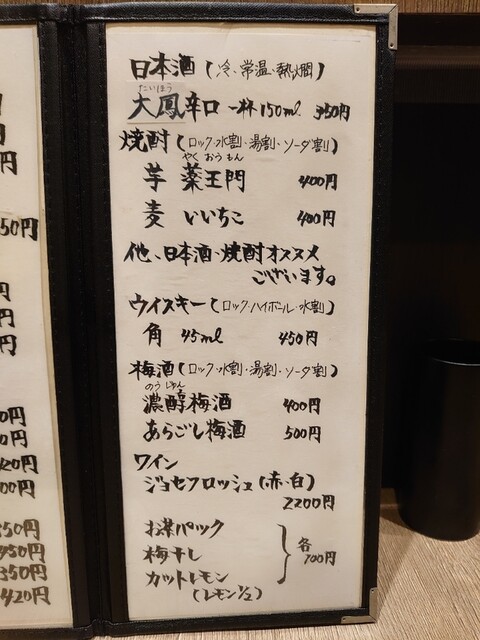 日本酒(冷・常温・熱燗)
たいほう
大鳳辛口 一杯150ml 350円
焼酎(ロック・水割・湯割・ソーダ割)
やくおうもん
芋 薬王門 400円
麦 いいちこ 400円
他、日本酒・焼酎オススメ
ございます。
ウイスキー(ロック・ハイボール・水割)
角 45ml 450円
梅酒(ロック・水割・湯割・ソーダ割)
のうじゅん
濃醇梅酒 400円
あらごし梅酒 500円
ワイン
ジョセフロッシュ(赤・白)
2200円
お茶パック
梅干し
カットレモン
(レモン1/2)
各
700円
円
50円
円
円
円
0円
0円
420円
00円
350円
450円
350円
420円